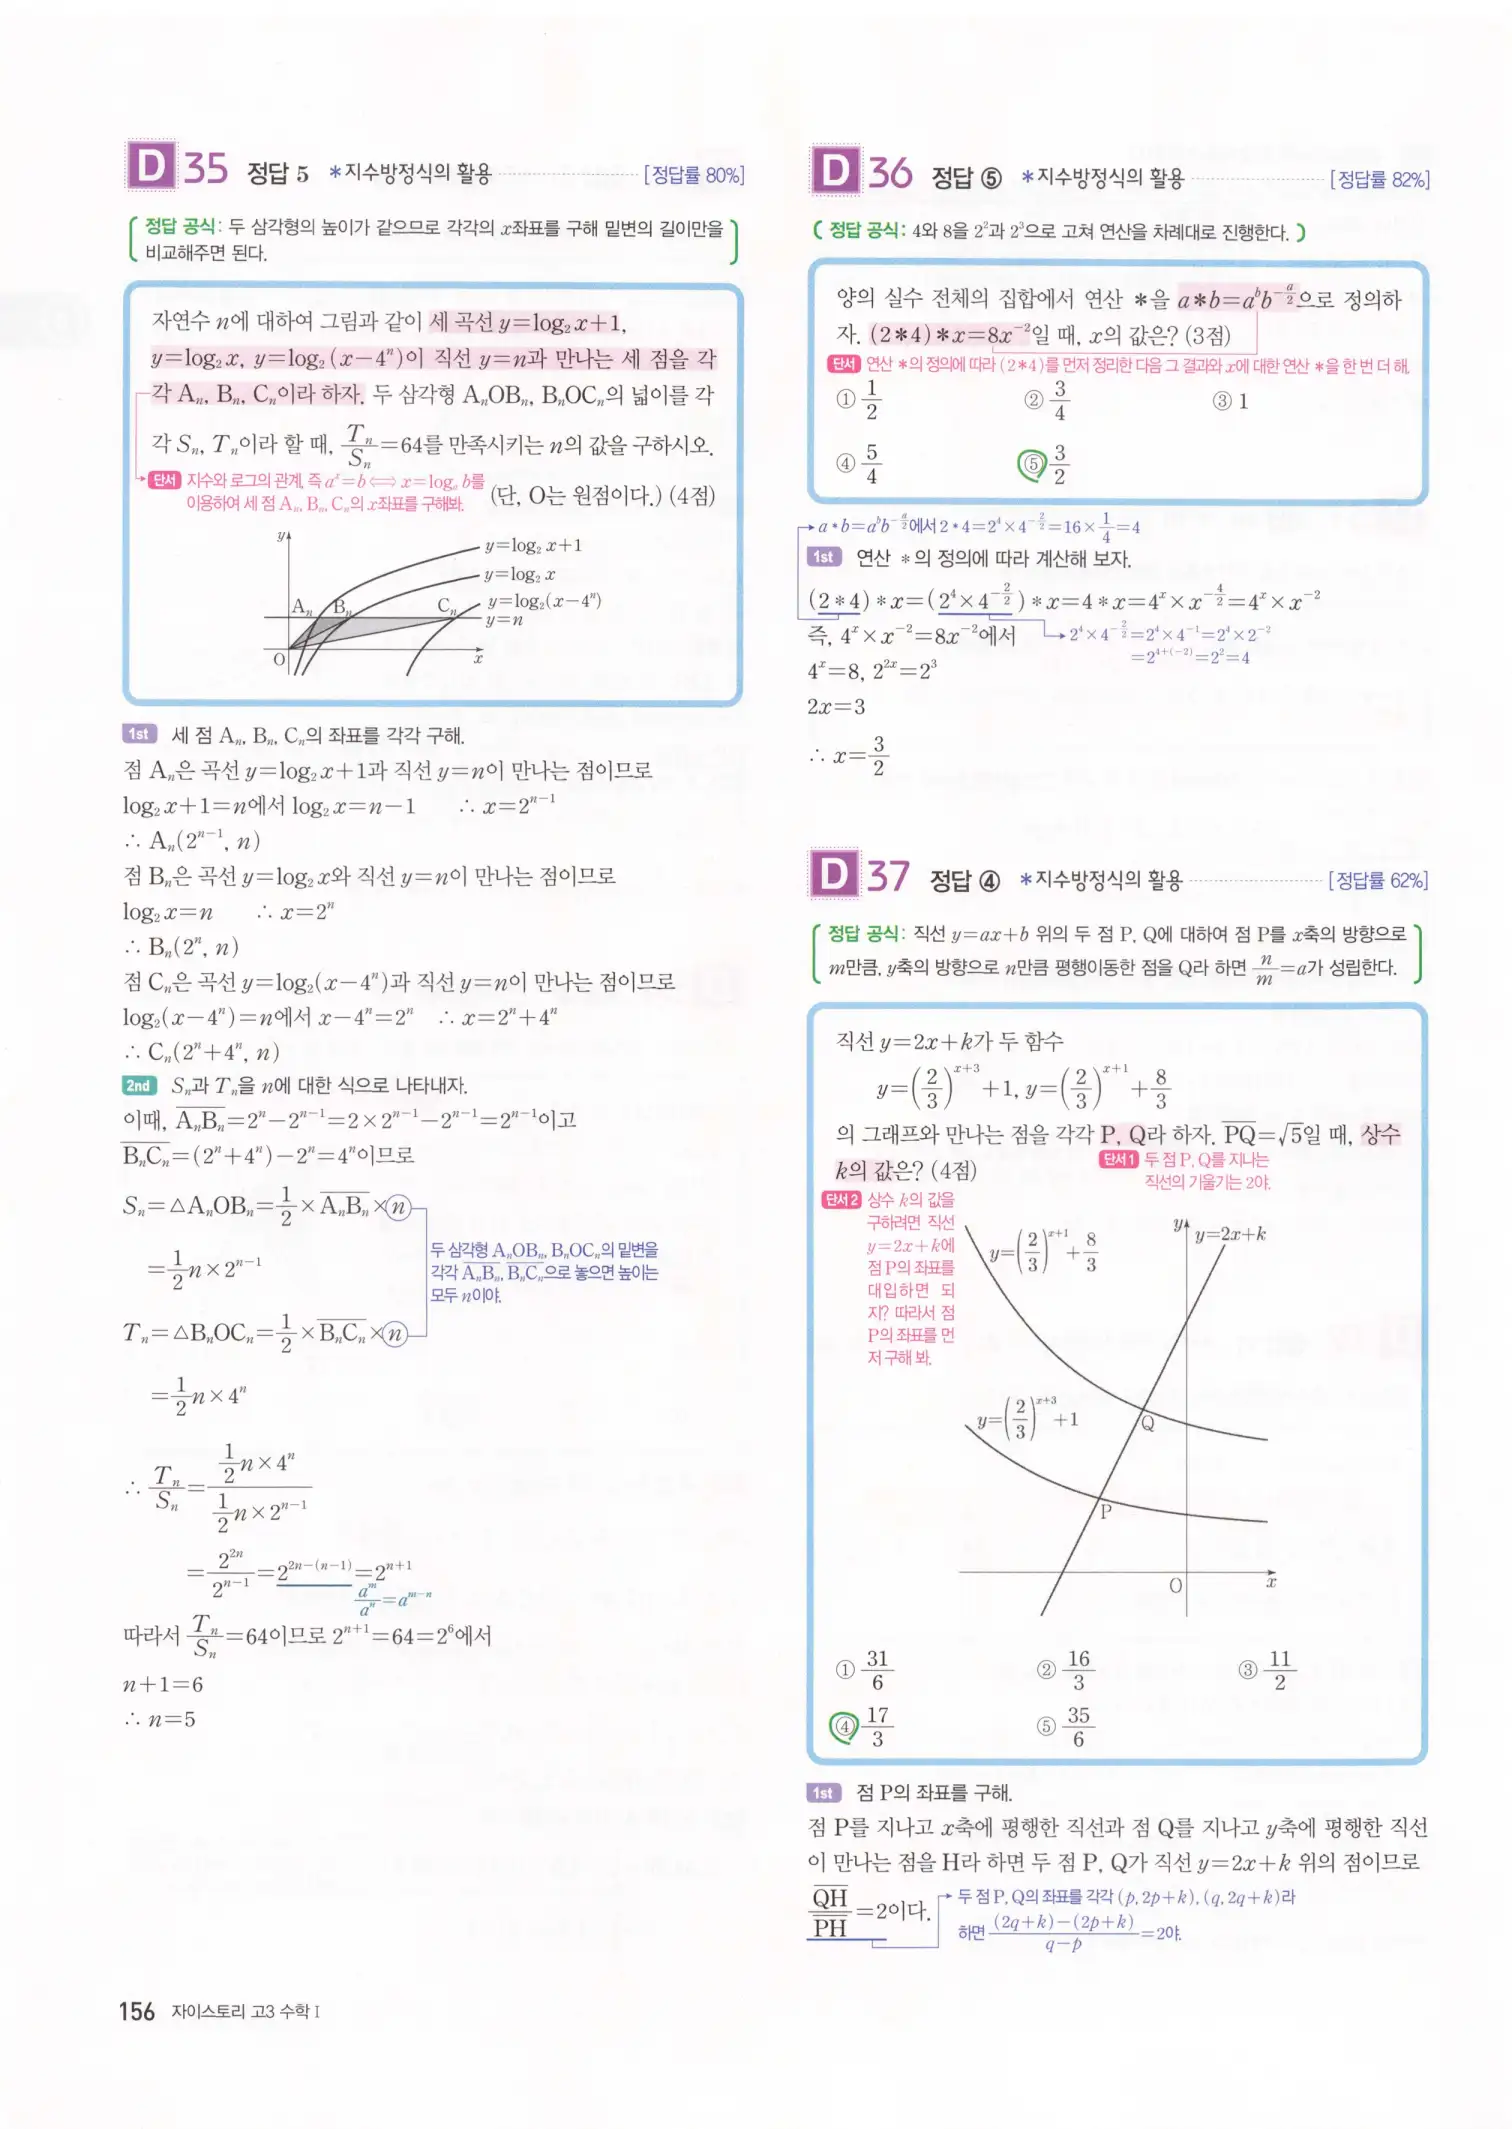 D 35 정답 5 *지수방정식의 활용 [정답률 80%]
정답 공식: 두 삼각형의 높이가 같으므로 각각의 x좌표를 구해 밑변의 길이만을
비교해주면 된다.
자연수 n에 대하여 그림과 같이 세 곡선 y=log₂ x+1,
y=log₂ x, y=log₂ (x−4ⁿ)이 직선 y=n과 만나는 세 점을 각
각 Aₙ, Bₙ, Cₙ이라 하자. 두 삼각형 AₙOBₙ, BₙOCₙ의 넓이를 각
각 Sₙ, Tₙ이라 할 때, Tₙ/Sₙ=64를 만족시키는 n의 값을 구하시오.
(단, O는 원점이다.) (4점)
단서 지수와 로그의 관계, 즉 aˣ=b⟺x=logₐ b를
이용하여 세 점 Aₙ, Bₙ, Cₙ의 x좌표를 구해봐.
y
y=log₂ x+1
y=log₂ x
Aₙ Bₙ Cₙ y=log₂(x−4ⁿ)
y=n
O x
1st 세 점 Aₙ, Bₙ, Cₙ의 좌표를 각각 구해.
점 Aₙ은 곡선 y=log₂ x+1과 직선 y=n이 만나는 점이므로
log₂ x+1=n에서 log₂ x=n−1 ∴ x=2ⁿ⁻¹
∴ Aₙ(2ⁿ⁻¹, n)
점 Bₙ은 곡선 y=log₂ x와 직선 y=n이 만나는 점이므로
log₂ x=n ∴ x=2ⁿ
∴ Bₙ(2ⁿ, n)
점 Cₙ은 곡선 y=log₂(x−4ⁿ)과 직선 y=n이 만나는 점이므로
log₂(x−4ⁿ)=n에서 x−4ⁿ=2ⁿ ∴ x=2ⁿ+4ⁿ
∴ Cₙ(2ⁿ+4ⁿ, n)
2nd Sₙ과 Tₙ을 n에 대한 식으로 나타내자.
이때, AₙBₙ=2ⁿ−2ⁿ⁻¹=2×2ⁿ⁻¹−2ⁿ⁻¹=2ⁿ⁻¹이고
BₙCₙ=(2ⁿ+4ⁿ)−2ⁿ=4ⁿ이므로
Sₙ=△AₙOBₙ=1/2×AₙBₙ×n
=1/2n×2ⁿ⁻¹
두 삼각형 AₙOBₙ, BₙOCₙ의 밑변을
각각 AₙBₙ, BₙCₙ으로 놓으면 높이는
모두 n이야.
Tₙ=△BₙOCₙ=1/2×BₙCₙ×n
=1/2n×4ⁿ
∴ Tₙ/Sₙ=(1/2n×4ⁿ)/(1/2n×2ⁿ⁻¹)
=2²ⁿ/2ⁿ⁻¹=2²ⁿ⁻⁽ⁿ⁻¹⁾=2ⁿ⁺¹
aᵐ/aⁿ=aᵐ⁻ⁿ
따라서 Tₙ/Sₙ=64이므로 2ⁿ⁺¹=64=2⁶에서
n+1=6
∴ n=5
156 자이스토리 고3 수학 I
D 36 정답 ⑤ *지수방정식의 활용 [정답률 82%]
정답 공식: 4와 8을 2²과 2³으로 고쳐 연산을 차례대로 진행한다.
양의 실수 전체의 집합에서 연산 *을 a*b=a^b b^(−a/2)으로 정의하
자. (2*4)*x=8x⁻²일 때, x의 값은? (3점)
단서 연산 *의 정의에 따라 (2*4)를 먼저 정리한 다음 그 결과와 x에 대한 연산 *을 한 번 더 해.
① 1/2 ② 3/4 ③ 1
④ 5/4 ⑤ 3/2
a*b=a^b b^(−a/2)에서 2*4=2⁴×4^(−2/2)=16×1/4=4
1st 연산 *의 정의에 따라 계산해 보자.
(2*4)*x=(2⁴×4^(−2/2))*x=4*x=4ˣ×x^(−4/2)=4ˣ×x⁻²
즉, 4ˣ×x⁻²=8x⁻²에서
2⁴×4^(−2/2)=2⁴×4⁻¹=2⁴×2⁻²
=2^(4+(−2))=2²=4
4ˣ=8, 2²ˣ=2³
2x=3
∴ x=3/2
D 37 정답 ④ *지수방정식의 활용 [정답률 62%]
정답 공식: 직선 y=ax+b 위의 두 점 P, Q에 대하여 점 P를 x축의 방향으로
m만큼, y축의 방향으로 n만큼 평행이동한 점을 Q라 하면 n/m=a가 성립한다.
직선 y=2x+k가 두 함수
y=(2/3)^(x+3)+1, y=(2/3)^(x+1)+8/3
의 그래프와 만나는 점을 각각 P, Q라 하자. PQ=√5일 때, 상수
k의 값은? (4점)
단서1 두 점 P, Q를 지나는
직선의 기울기는 2야.
단서2 상수 k의 값을
구하려면 직선
y=2x+k에
점 P의 좌표를
대입하면 되
지? 따라서 점
P의 좌표를 먼
저 구해 봐.
y=(2/3)^(x+1)+8/3
y y=2x+k
y=(2/3)^(x+3)+1
Q
P
O x
① 31/6 ② 16/3 ③ 11/2
④ 17/3 ⑤ 35/6
1st 점 P의 좌표를 구해.
점 P를 지나고 x축에 평행한 직선과 점 Q를 지나고 y축에 평행한 직선
이 만나는 점을 H라 하면 두 점 P, Q가 직선 y=2x+k 위의 점이므로
QH/PH=2이다.
두 점 P, Q의 좌표를 각각 (p, 2p+k), (q, 2q+k)라
하면 ((2q+k)−(2p+k))/(q−p)=2야.